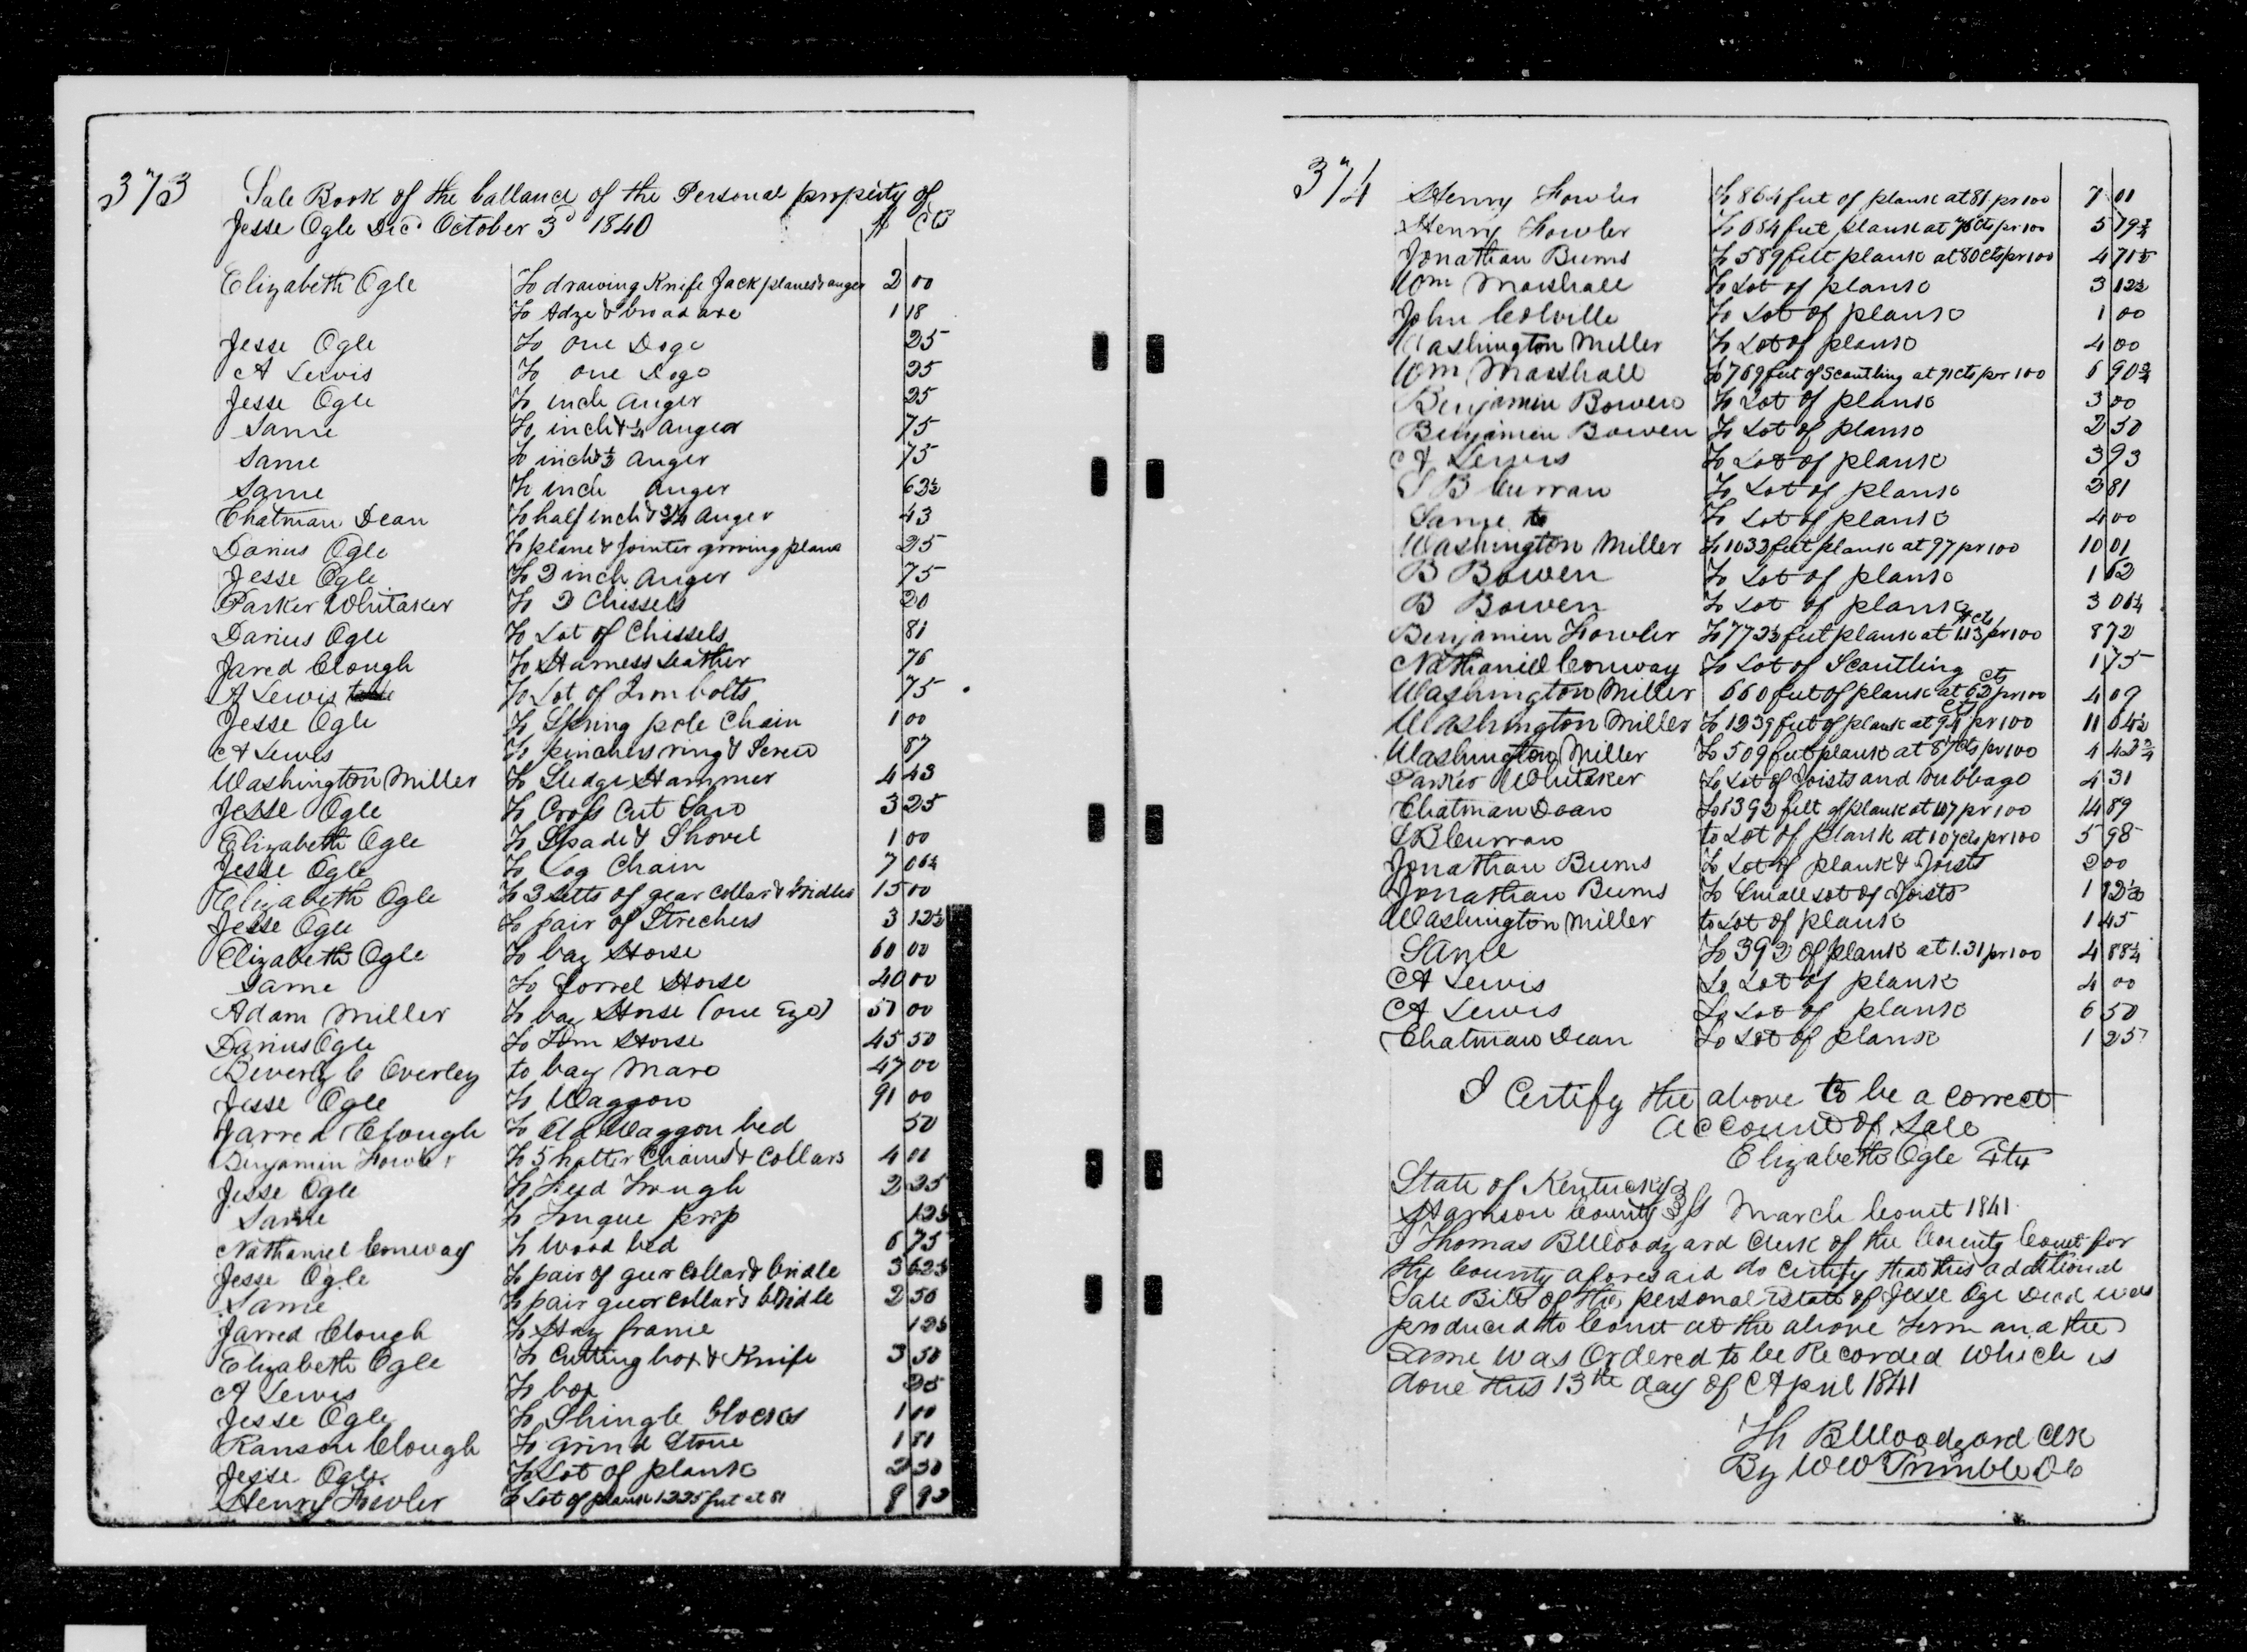 373
Sale Book of the ballance of the Personal property of
Jesse Ogle Decd October 3d 1840 $ cts
Elizabeth Ogle To drawing Knife Jack planes & auger 2 00
To Adze & broad axe 1 18
Jesse Ogle To one Dogo 25
A Lewis To one Dogo 25
Jesse Ogle To inch auger 25
Same To inch & 1/4 auger 75
Same To inch & 1/2 auger 75
Same To inch auger 62½
Chatman Dean To half inch & 3/4 auger 43
Darius Ogle To plane & Jointer groving plane 25
Jesse Ogle To 2 inch auger 75
Parker Whitaker To 2 Chissels 20
Darius Ogle To Lot of Chissels 81
Jared Clough To Harness Leather 76
A Lewis To Lot of Iron bolts 75
Jesse Ogle To Spring pole Chain 1 00
A Lewis To pinchers ring & Screw 87
Washington Miller To Sledge Hammer 4 43
Jesse Ogle To Cross Cut Saw 3 25
Elizabeth Ogle To Spade & Shovel 1 00
Jesse Ogle To Log Chain 7 06¼
Elizabeth Ogle To 3 setts of gear collar & bridles 15 00
Jesse Ogle To pair of Strechers 3 12½
Elizabeth Ogle To bay Horse 60 00
Same To Sorrel Horse 40 00
Adam Miller To bay Horse (one Eye) 51 00
Darius Ogle To Tom Horse 45 50
Beverly C Overley to bay Mare 47 00
Jesse Ogle To Waggon 91 00
Jarred Clough To Old Waggon bed 50
Benjamin Fowler To 5 halter Chains & Collars 4 01
Jesse Ogle To Feed Trough 2 25
Same To Tongue prop 12½
Nathaniel Conway To Wood bed 6 75
Jesse Ogle To pair of geer collar & bridle 3 62½
Same To pair geer collar & bridle 2 50
Jarred Clough To Hay frame 12½
Elizabeth Ogle To Cutting box & Knife 3 50
A Lewis To box 25
Jesse Ogle To Shingle blocks 1 00
Ranson Clough To Grind Stone 1 81
Jesse Ogle To Lot of plank 2 50
Henry Fowler To Lot of plank 1225 feet at 81 9 92
374
Henry Fowler To 864 feet of plank at 81 pr 100 7 01
Henry Fowler To 684 feet plank at 76 cts pr 100 5 19¾
Jonathan Burns To 589 feet plank at 80 cts pr 100 4 71½
Wm Marshall To Lot of plank 3 12½
John Colville To Lot of plank 1 00
Washington Miller To Lot of plank 4 00
Wm Marshall To 769 feet of Scantling at 91 cts pr 100 6 90¾
Benjamin Bowen To Lot of plank 3 00
Benjamin Bowen To Lot of plank 2 50
A Lewis To Lot of plank 3 93
S B Curran To Lot of plank 2 81
Same to To Lot of plank 4 00
Washington Miller To 1032 feet plank at 97 pr 100 10 01
B Bowen To Lot of plank 1 62
B Bowen To Lot of plank 3 06¼
Benjamin Fowler To 772½ feet plank at $ cts 1.13 pr 100 8 72
Nathaniel Conway To Lot of Scantling 1 75
Washington Miller 660 feet of plank at 62 cts pr 100 4 09
Washington Miller To 1239 feet of plank at 94 cts pr 100 11 64½
Washington Miller To 509 feet plank at 87 cts pr 100 4 42¾
Parker Whitaker To Lot of Joists and rubbage 4 31
Chatman Dean To 1392 feet of plank at 107 pr 100 14 89
S B Curran to Lot of plank at 107 cts pr 100 5 98
Jonathan Burns To Lot of plank & Joists 2 00
Jonathan Burns To Small Lot of Joists 1 12½
Washington Miller to Lot of plank 1 45
Same To 392 of plank at 1.31 pr 100 4 88¼
A Lewis To Lot of plank 4 00
A Lewis To Lot of plank 6 50
Chatman Dean To Lot of plank 1 25
I Certify the above to be a correct
account of Sale
Elizabeth Ogle
State of Kentucky
Harrison County March Court 1841
I Thomas B Woodyard Clerk of the County Court for
the County aforesaid do certify that this additional
Sale Bill of the personal Estate of Jesse Ogle Decd was
produced to Court at the above term and the
same was Ordered to be Recorded which is
done this 13th day of April 1841
Th B Woodyard Clk
By W W Trimble DC